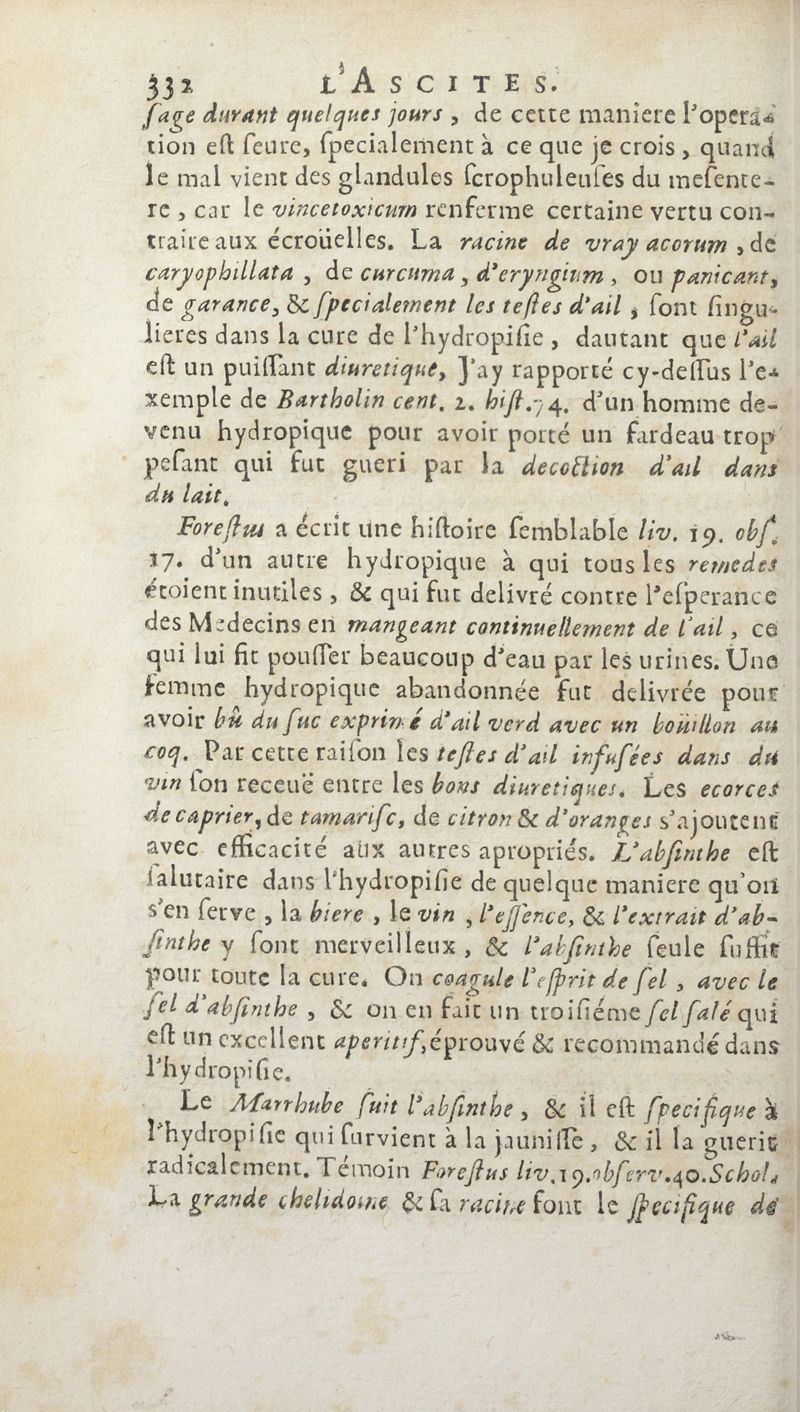 332 L'ASCITES.
ſage durant quelques jours, de cette maniere l'opera-
tion eſt ſeure, ſpecialement à ce que je crois, quand
le mal vient des glandules ſcrophuleuſes du meſente-
re, car le vincetoxicum renferme certaine vertu con-
traire aux écroüelles. La racine de vray acorum, de
caryophillata, de curcuma, d'eryngium, ou panicant,
de garance, & ſpecialement les teſtes d'ail, ſont ſingu-
lieres dans la cure de l'hydropiſie, dautant que l'ail
eſt un puiſſant diuretique, J'ay rapporté cy-deſſus l'e-
xemple de Bartholin cent. 2. hiſt. 74. d'un homme de-
venu hydropique pour avoir porté un fardeau trop
peſant qui fut gueri par la decoction d'ail dans
du lait.
Foreſtus a écrit une hiſtoire ſemblable liv. 19. obſ.
17. d'un autre hydropique à qui tous les remedes
étoient inutiles, & qui fut delivré contre l'eſperance
des Medecins en mangeant continuellement de l'ail, ce
qui lui fit pouſſer beaucoup d'eau par les urines. Une
femme hydropique abandonnée fut delivrée pour
avoir bû du ſuc exprimé d'ail verd avec un boüillon au
coq. Par cette raiſon les teſtes d'ail infuſées dans du
vin ſon receuë entre les bons diuretiques. Les ecorces
de caprier, de tamariſc, de citron & d'oranges s'ajoutent
avec efficacité aux autres apropriés. L'abſinthe eſt
ſalutaire dans l'hydropiſie de quelque maniere qu'on
s'en ſerve, la biere, le vin, l'eſſence, & l'extrait d'ab-
ſinthe y ſont merveilleux, & l'abſinthe ſeule ſuffit
pour toute la cure. On coagule l'eſprit de ſel, avec le
ſel d'abſinthe, & on en fait un troiſiéme ſel ſalé qui
eſt un excellent aperitif, éprouvé & recommandé dans
l'hydropiſie.
Le Marrhube ſuit l'abſinthe, & il eſt ſpecifique à
l'hydropiſie qui ſurvient à la jauniſſe, & il la guerit
radicalement. Témoin Foreſtus liv. 19. obſerv. 40. Schol.
La grande chelidoine & ſa racine ſont le ſpecifique de